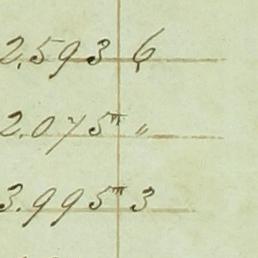 2.593 6
2.075 "
3.995 3